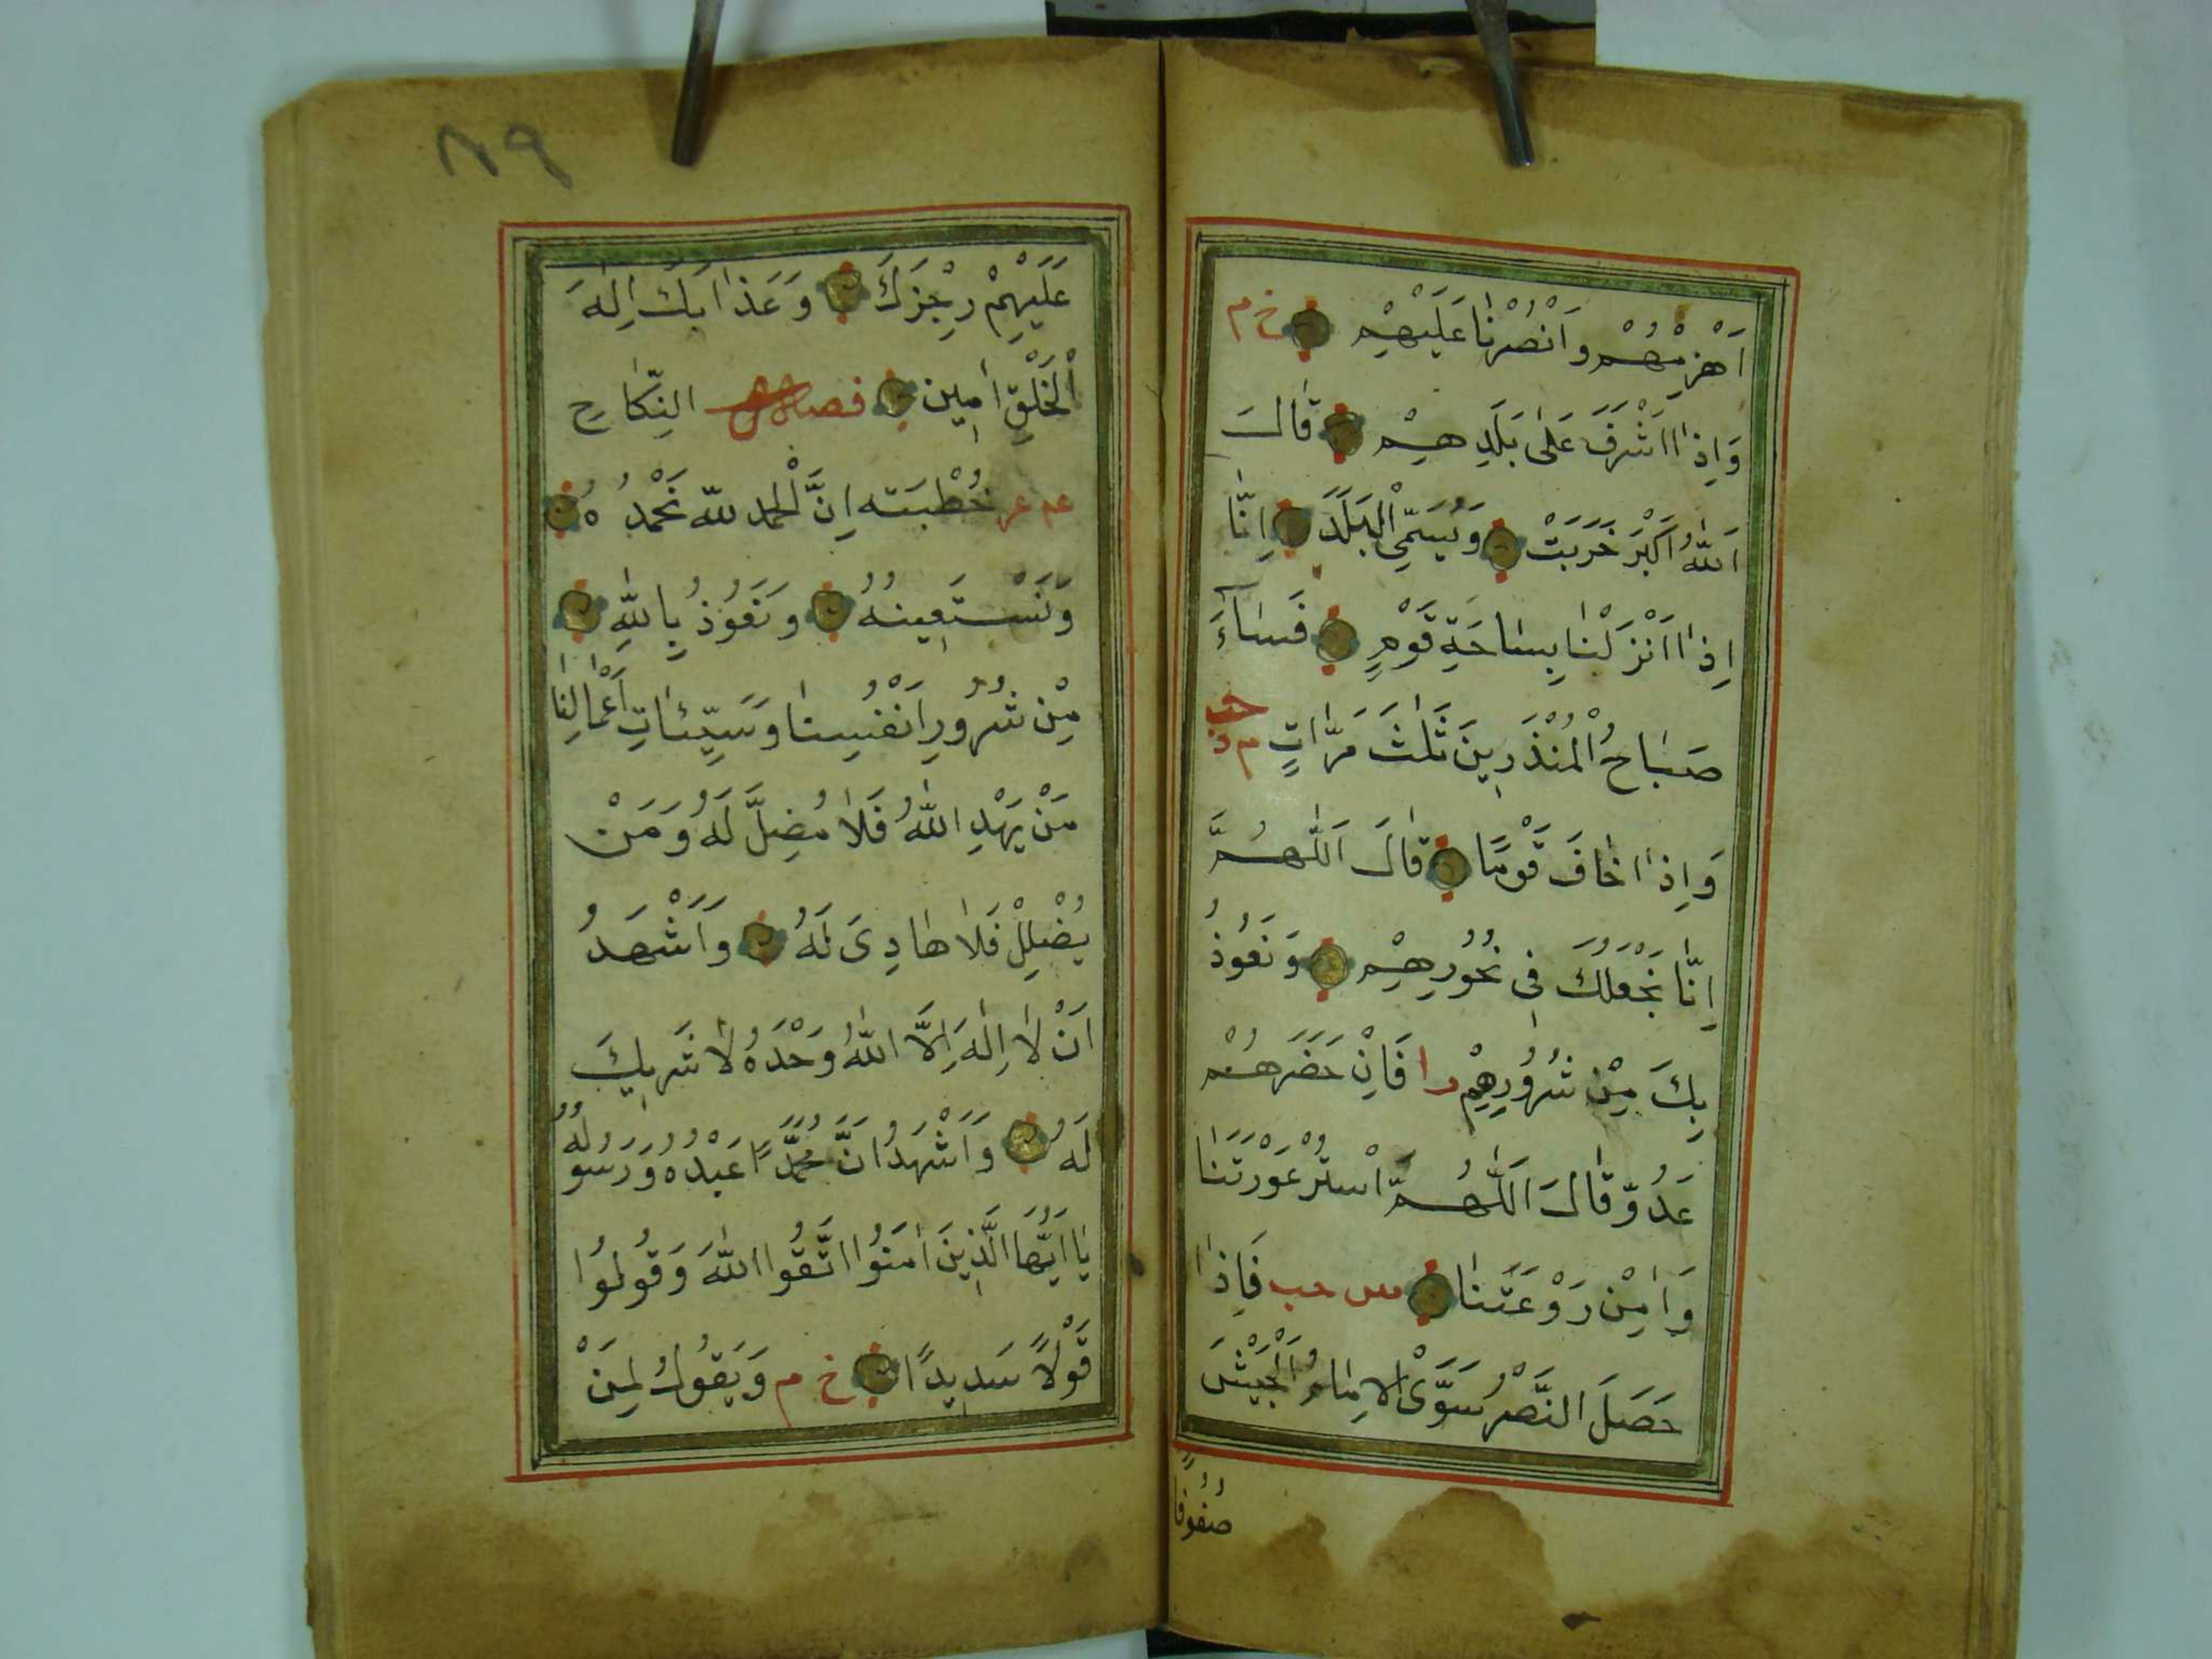 اَهْزِمْهُمْ وَانْصُرْنَا عَلَيْهِمْ خ م
وَاِذَا اَشْرَفَ عَلٰى بَلَدِهِمْ قَالَ
اَللّٰهُ اَكْبَرُ خَرِبَتْ وَيُسَمِّي الْبَلَدَ اِنَّا
اِذَا اَنْزَلْنَا بِسَاحَةِ قَوْمٍ فَسَاءَ
صَبَاحُ الْمُنْذَرِينَ ثَلٰثَ مَرَّاتٍ
وَاِذَا خَافَ قَوْمًا قَالَ اَللّٰهُمَّ
اِنَّا نَجْعَلُكَ فِى نُحُورِهِمْ وَنَعُوذُ
بِكَ مِنْ شُرُورِهِمْ فَاِنْ حَضَرَهُمْ
عَدُوٌّ قَالَ اَللّٰهُمَّ اسْتُرْ عَوْرَتَنَا
وَاٰمِنْ رَوْعَتَنَا مس حب فَاِذَا
حَصَلَ النَّصْرُ سَوَّى الْاِمَامُ الْجَيْشَ
صُفُوفًا
٨٩
عَلَيْهِمْ رِجْزَكَ وَعَذَابَكَ اِلٰهَ
الْخَلْقِ اٰمِين النِّكَاحِ
عه عر خُطْبَته اِنَّ الْحَمْد للّه نَحْمَدُهُ
وَنَسْتَعِينُهُ وَنَعُوذُ بِاللّٰهِ
مِنْ شُرُورِ اَنْفُسِنَا وَسَيِّئَاتِ اَعْمَالِنَا
مَنْ يَهْدِ اللّٰهُ فَلَا مُضِلَّ لَهُ وَمَنْ
يُضْلِلْ فَلَا هَادِىَ لَهُ وَاَشْهَدُ
اَنْ لَا اِلٰهَ اِلَّا اللّٰهُ وَحْدَهُ لَا شَرِيكَ
لَهُ وَاَشْهَدُ اَنَّ مُحَمَّدًا عَبْدُهُ وَرَسُولُهُ
يَا اَيُّهَا الَّذِينَ اٰمَنُوا اتَّقُوا اللّٰهَ وَقُولُوا
قَوْلًا سَدِيدًا خ م وَيَقُولُ لِمَنْ